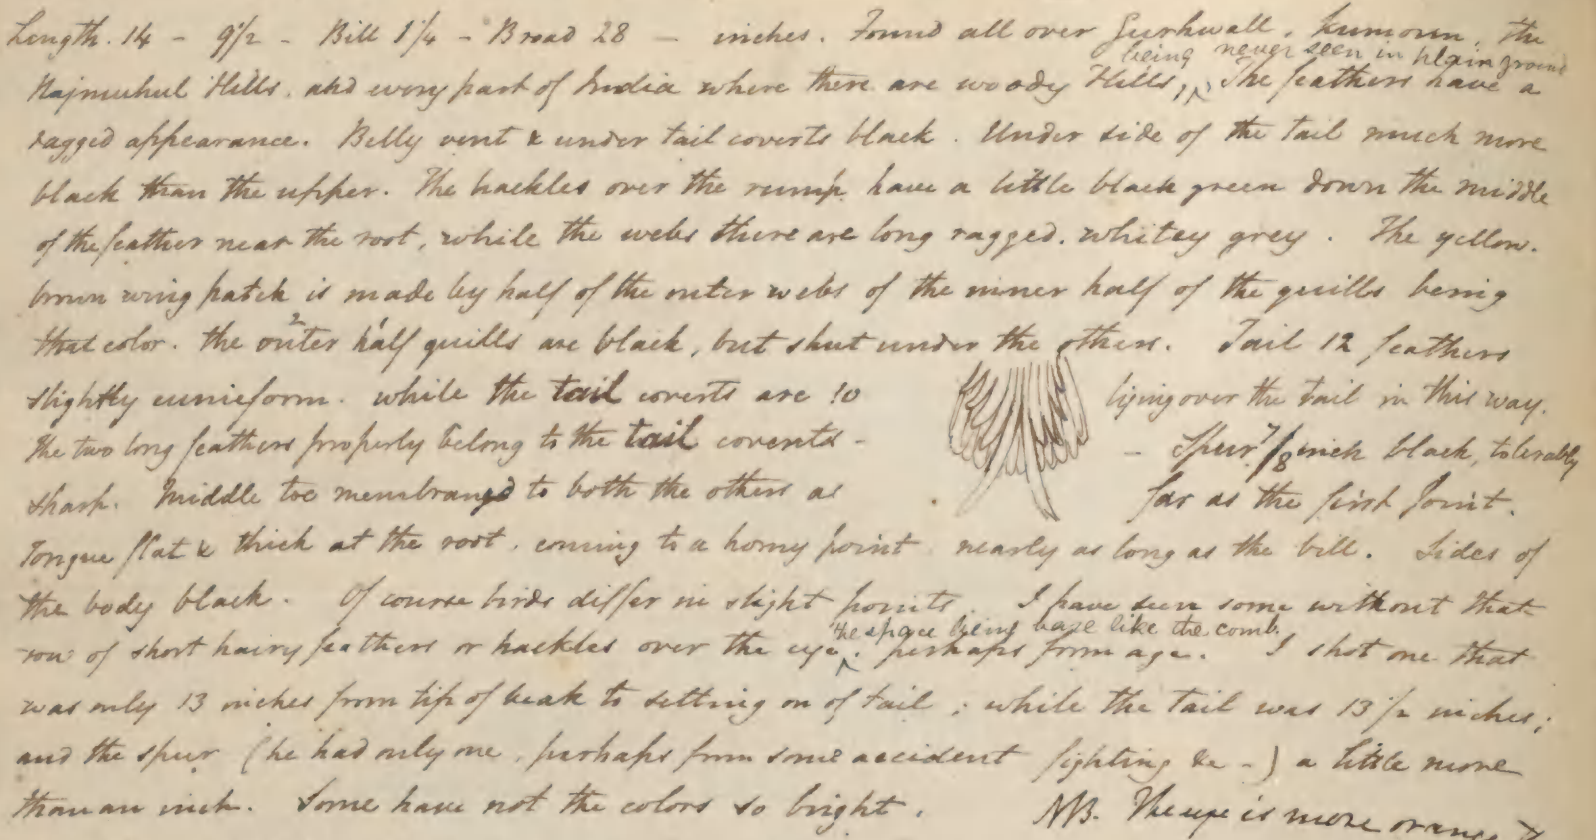 Length. 14 - 9 1/2 - Bill 1 1/4 - Broad 28 - inches. Found all over Gurhwall, Kumoun, the
being never seen in plain ground
Rajmuhul Hills, and every part of India where there are woody Hills, ^ The feathers have a
ragged appearance. Belly vent & under tail coverts black. Under side of the tail much more
black than the upper. The hackles over the rump have a little black green down the middle
of the feather near the root, while the webs there are long ragged, whitey grey. The yellow-
brown wing patch is made by half of the outer webs of the inner half of the quills being
that color. the outer 2 half 1 quills are black, but shut under the others. Tail 12 feathers
slightly cunieform. while the tail coverts are so lying over the tail in this way.
The two long feathers properly belong to the tail coverts - - Spur 7/8 inch black, tolerably
sharp. Middle toe membraned to both the others as far as the first joint.
Tongue flat & thick at the root, coming to a horny point nearly as long as the bill. Sides of
the body black. Of course birds differ in slight points. I have seen some without that
the space being bare like the comb.
row of short hairy feathers or hackles over the eye ^, perhaps from age. I shot one that
was only 13 inches from tip of beak to setting on of tail; while the tail was 13 1/2 inches;
and the spur (he had only one, perhaps from some accident fighting &c -) a little more
than an inch. Some have not the colors so bright. NB. The eye is more orange